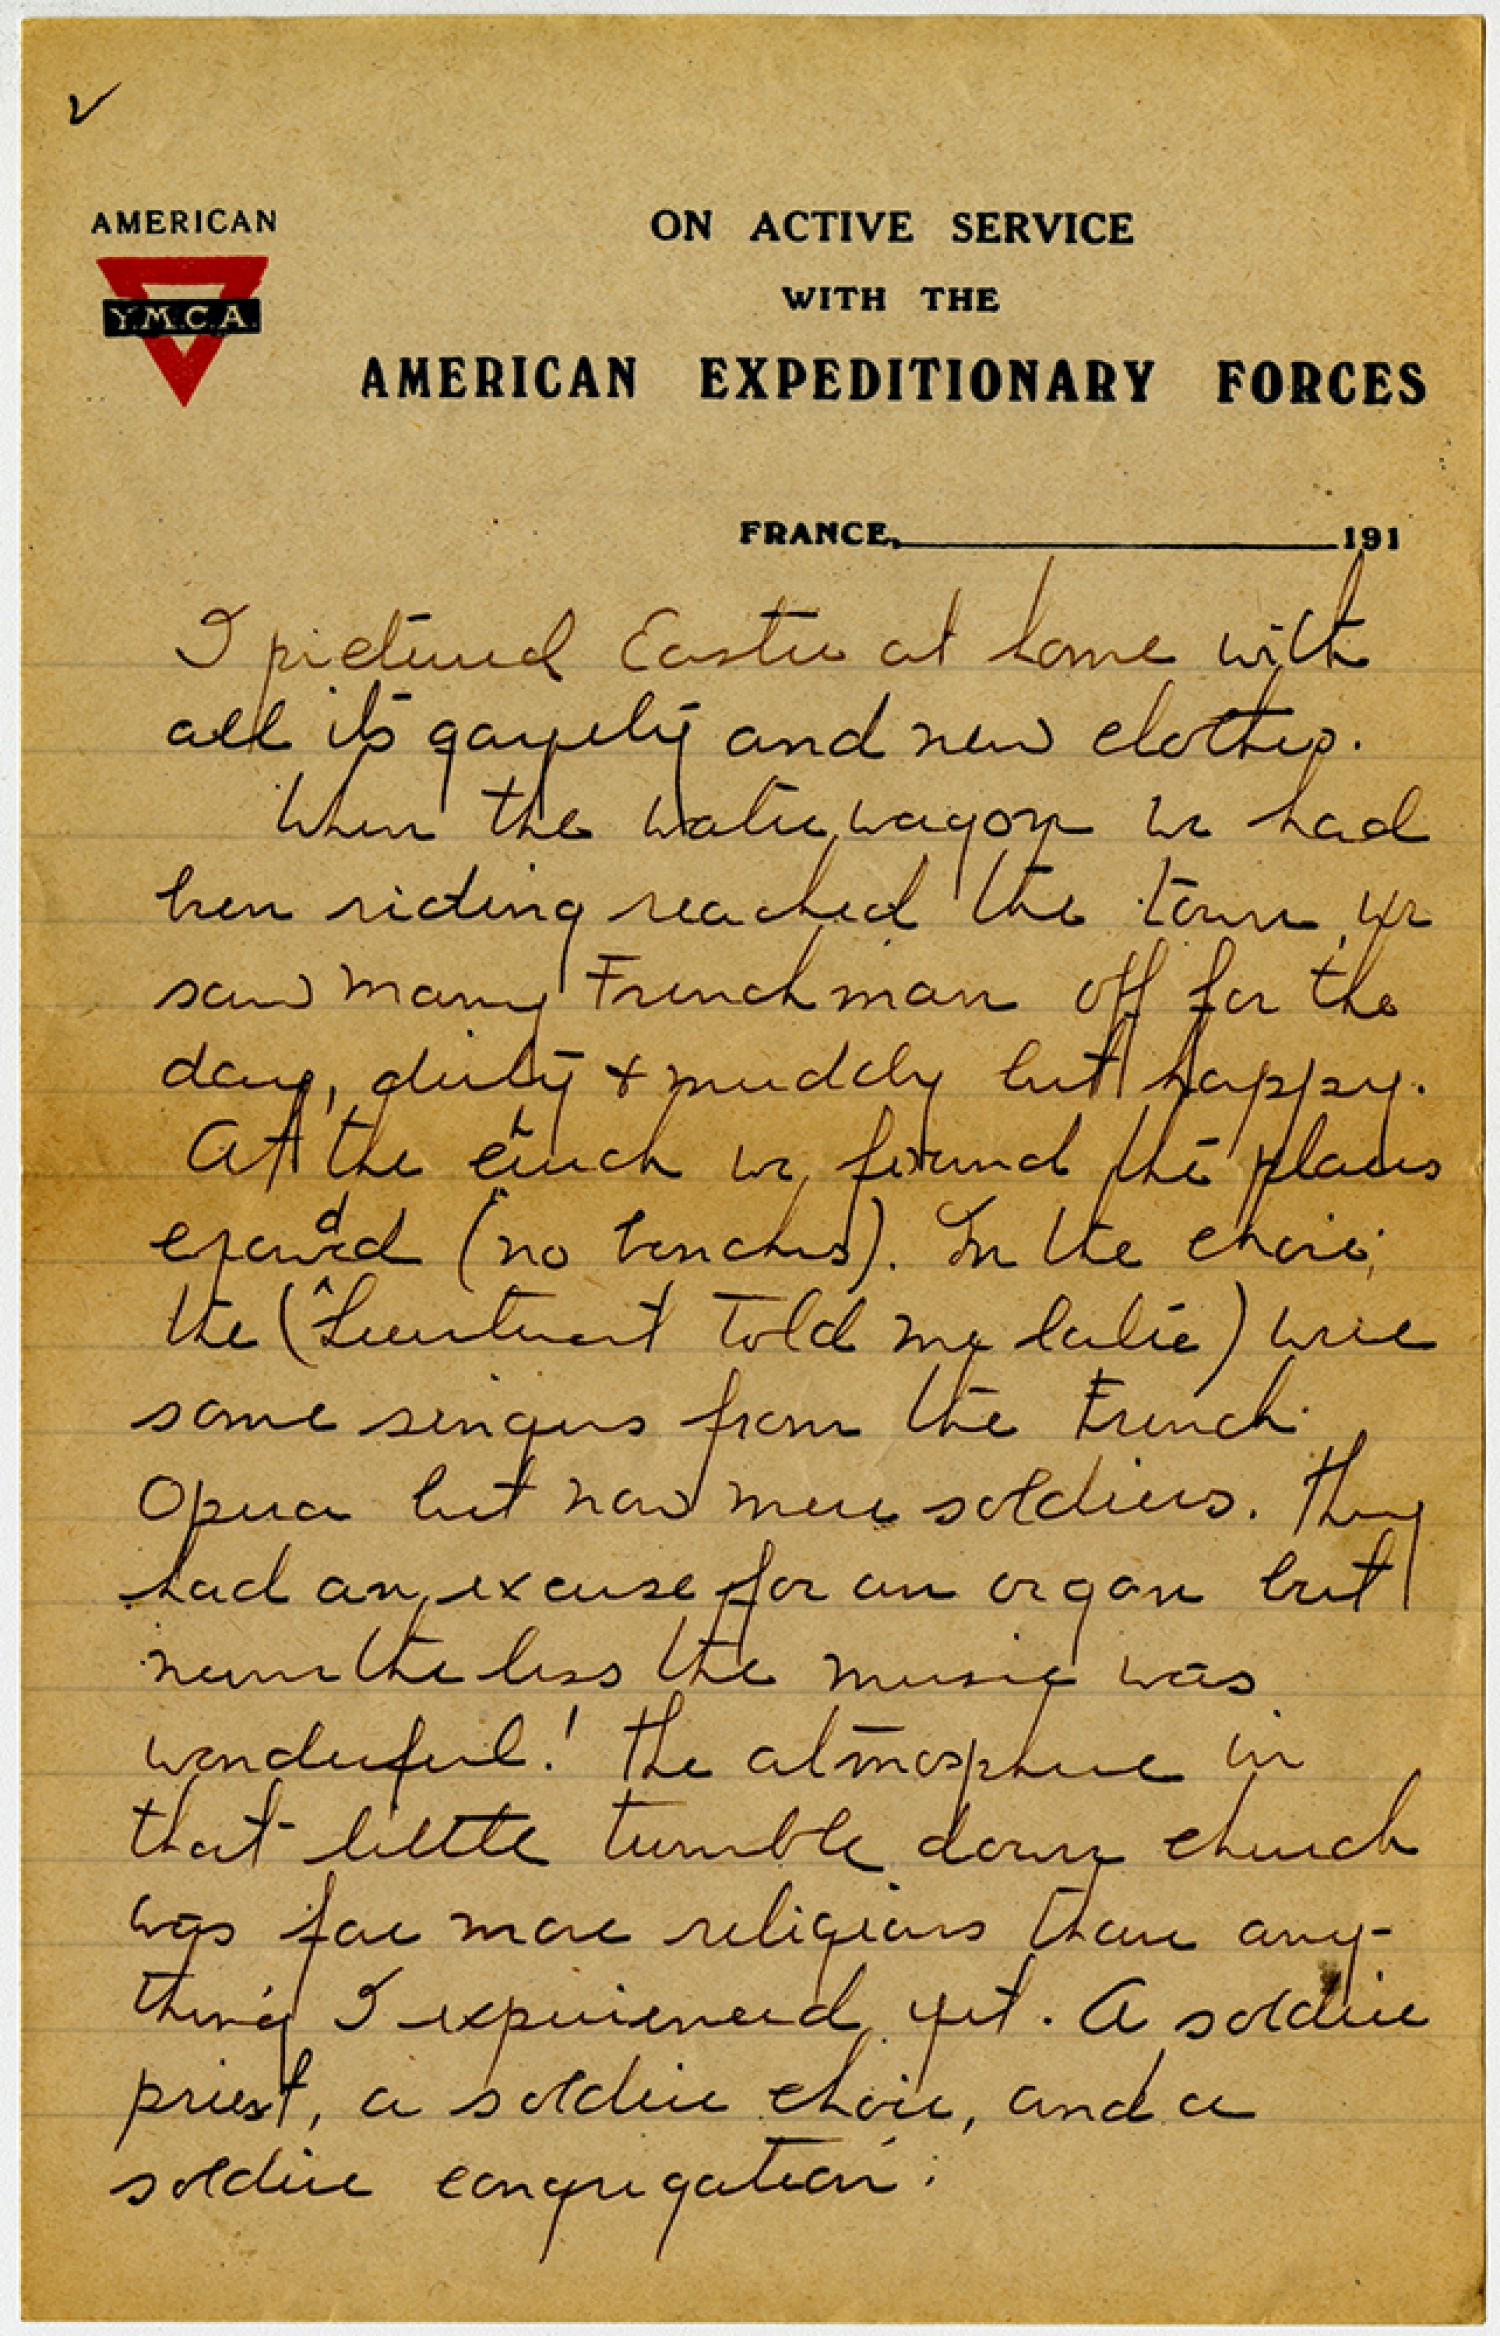 2
AMERICAN
Y.M.C.A.
ON ACTIVE SERVICE
WITH THE
AMERICAN EXPEDITIONARY FORCES
FRANCE, 191
I pictured Easter at home with
all its gayety and new clothes.
When the water wagon we had
been riding reached the town, we
saw many Frenchman off for the
day, dirty & muddy but happy.
At the church we found the places
crowded (no benches). In the choir,
the (Lieutenant told me later) were
some singers from the French
Opera but now mere soldiers. They
had an excuse for an organ but
never the less the music was
wonderful! The atmosphere in
that little tumble down church
was far more religious than any-
thing I experienced yet. A soldier
priest, a soldier choir, and a
soldier congregation.